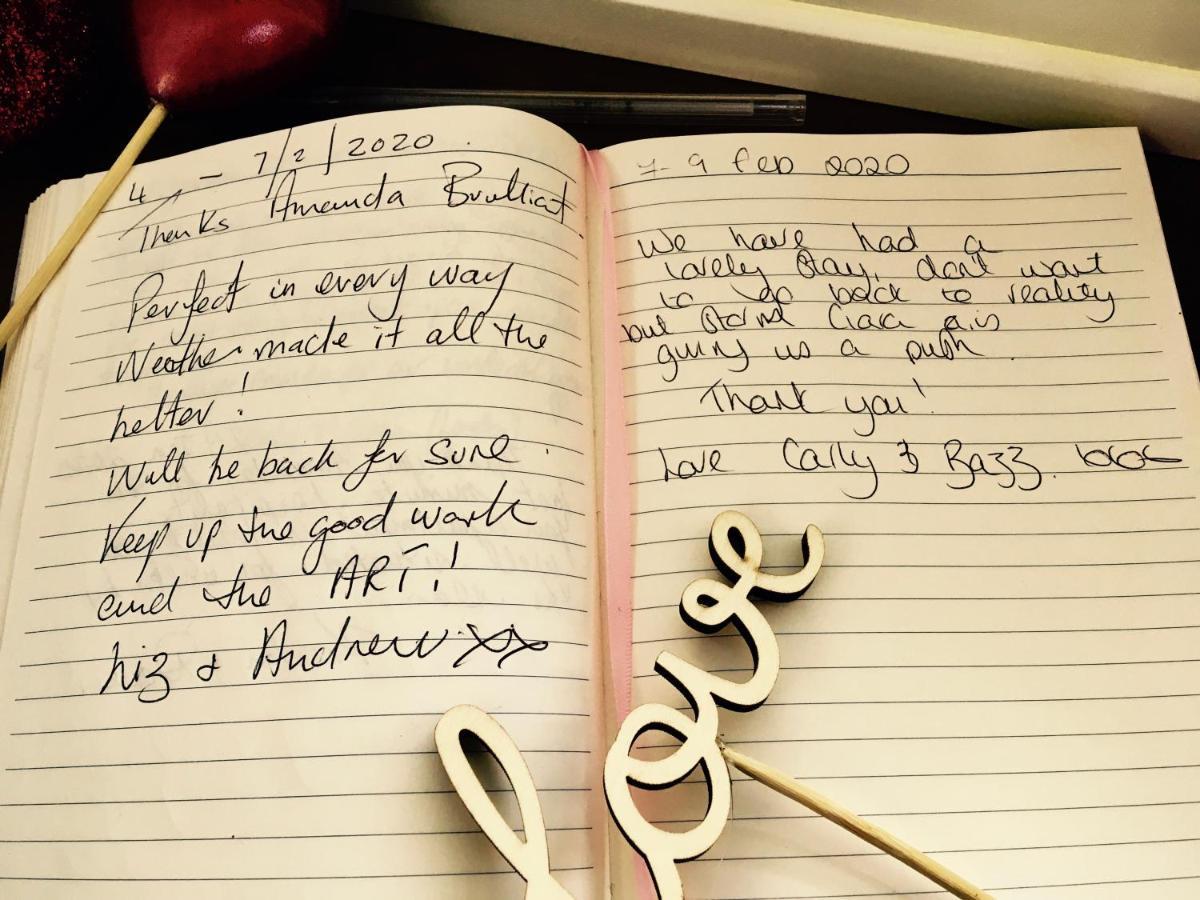 4 - 7/2/2020.
Thanks Amanda Brilliant.
Perfect in every way
Weather made it all the
better!
Will be back for sure.
Keep up the good work
and the ART!
Liz & Andrew xx
7-9 Feb 2020
We have had a
lovely stay, don't want
to go back to reality
but Storm Ciara is
giving us a push.
Thank you!
Love Carly & Bazz.
love